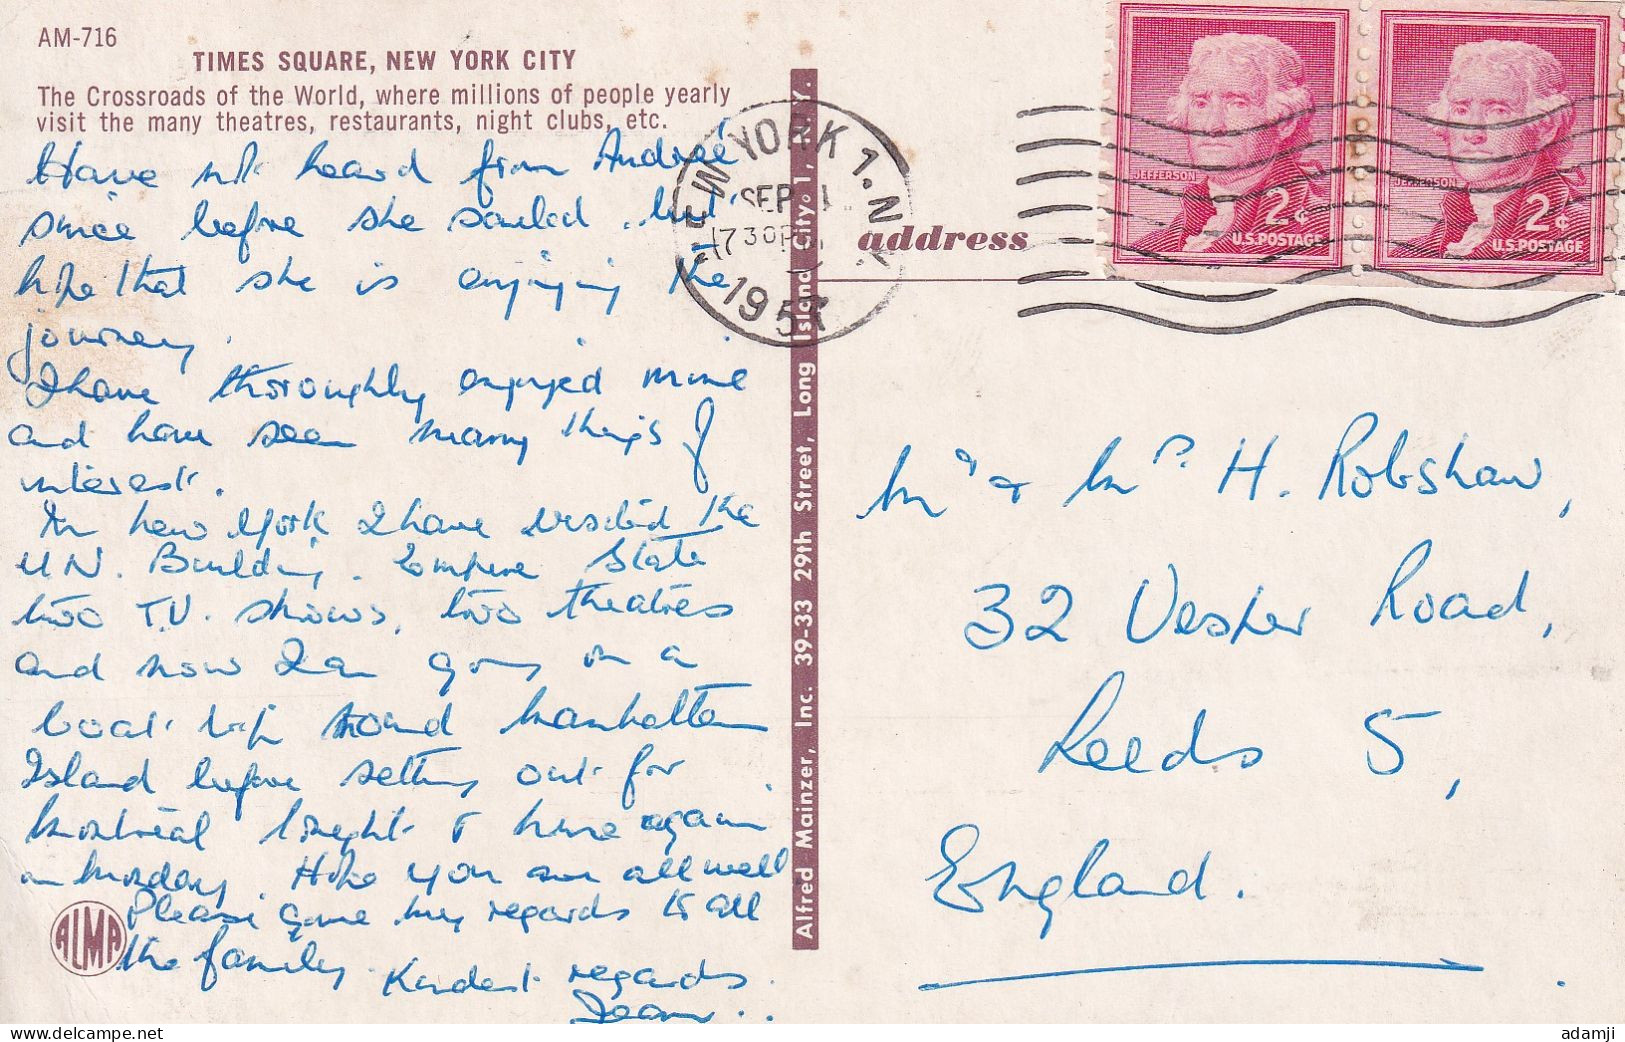 AM-716
TIMES SQUARE, NEW YORK CITY
The Crossroads of the World, where millions of people yearly
visit the many theatres, restaurants, night clubs, etc.
Have not heard from Andrée
since before she sailed, but
hope that she is enjoying the
journey.
I have thoroughly enjoyed mine
and have seen many things of
interest.
In New York I have visited the
UN. Building. Empire State
two T.V. shows, two theatres
and now I am going on a
boat trip round Manhattan
Island before setting out for
Montreal tonight & home again
on Monday. Hope you are all well
Please give my regards to all
the family.
Kindest regards.
Jean..
ALMA
Alfred Mainzer, Inc. 39-33 29th Street, Long Island City. 1, N.Y.
NEW YORK 1. N.Y.
SEP
730P
195
JEFFERSON
2¢
U.S. POSTAGE
JEFFERSON
2¢
U.S. POSTAGE
address
Mr & Mrs. H. Robshaw,
32 Vesper Road,
Leeds 5,
England.
adamji